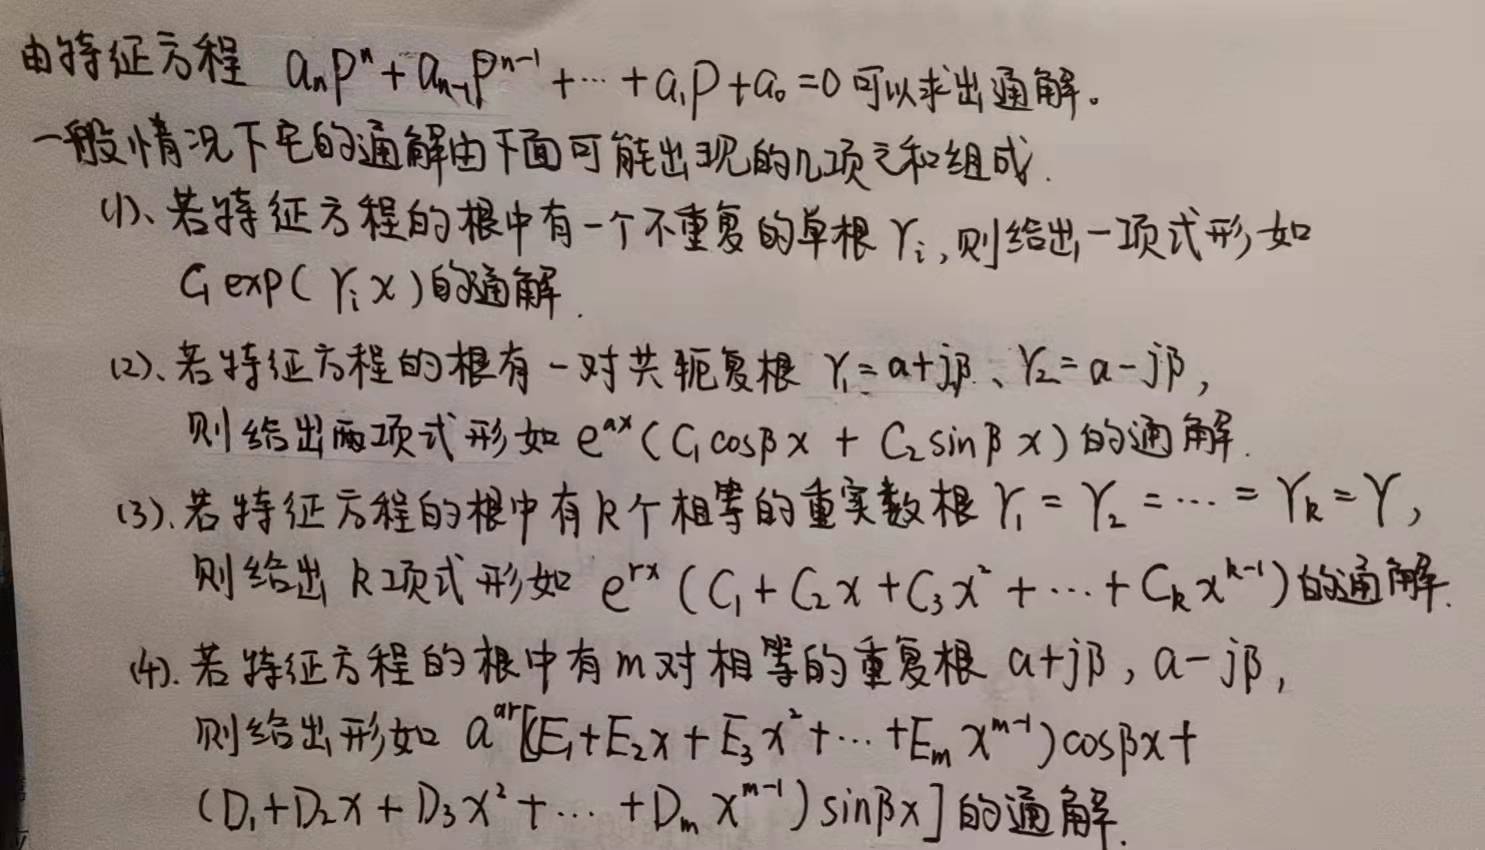 由特征方程 aₙpⁿ + aₙ₋₁pⁿ⁻¹ + ⋯ + a₁p + a₀ = 0 可以求出通解。
一般情况下它的通解由下面可能出现的几项之和组成.
(1)、若特征方程的根中有一个不重复的单根 γᵢ, 则给出一项式形如
C₁ exp(γᵢx) 的通解.
(2)、若特征方程的根有一对共轭复根 γ₁ = a+jβ、γ₂ = a-jβ,
则给出两项式形如 eᵃˣ(C₁cosβx + C₂sinβx) 的通解.
(3)、若特征方程的根中有k个相等的重实数根 γ₁ = γ₂ = ⋯ = γₖ = γ,
则给出k项式形如 eʳˣ(C₁ + C₂x + C₃x² + ⋯ + Cₖxᵏ⁻¹) 的通解.
(4). 若特征方程的根中有m对相等的重复根 a+jβ, a-jβ,
则给出形如 aᵃʳ[(E₁+E₂x+E₃x²+⋯+Eₘxᵐ⁻¹)cosβx+
(D₁+D₂x+D₃x²+⋯+Dₘxᵐ⁻¹)sinβx] 的通解.